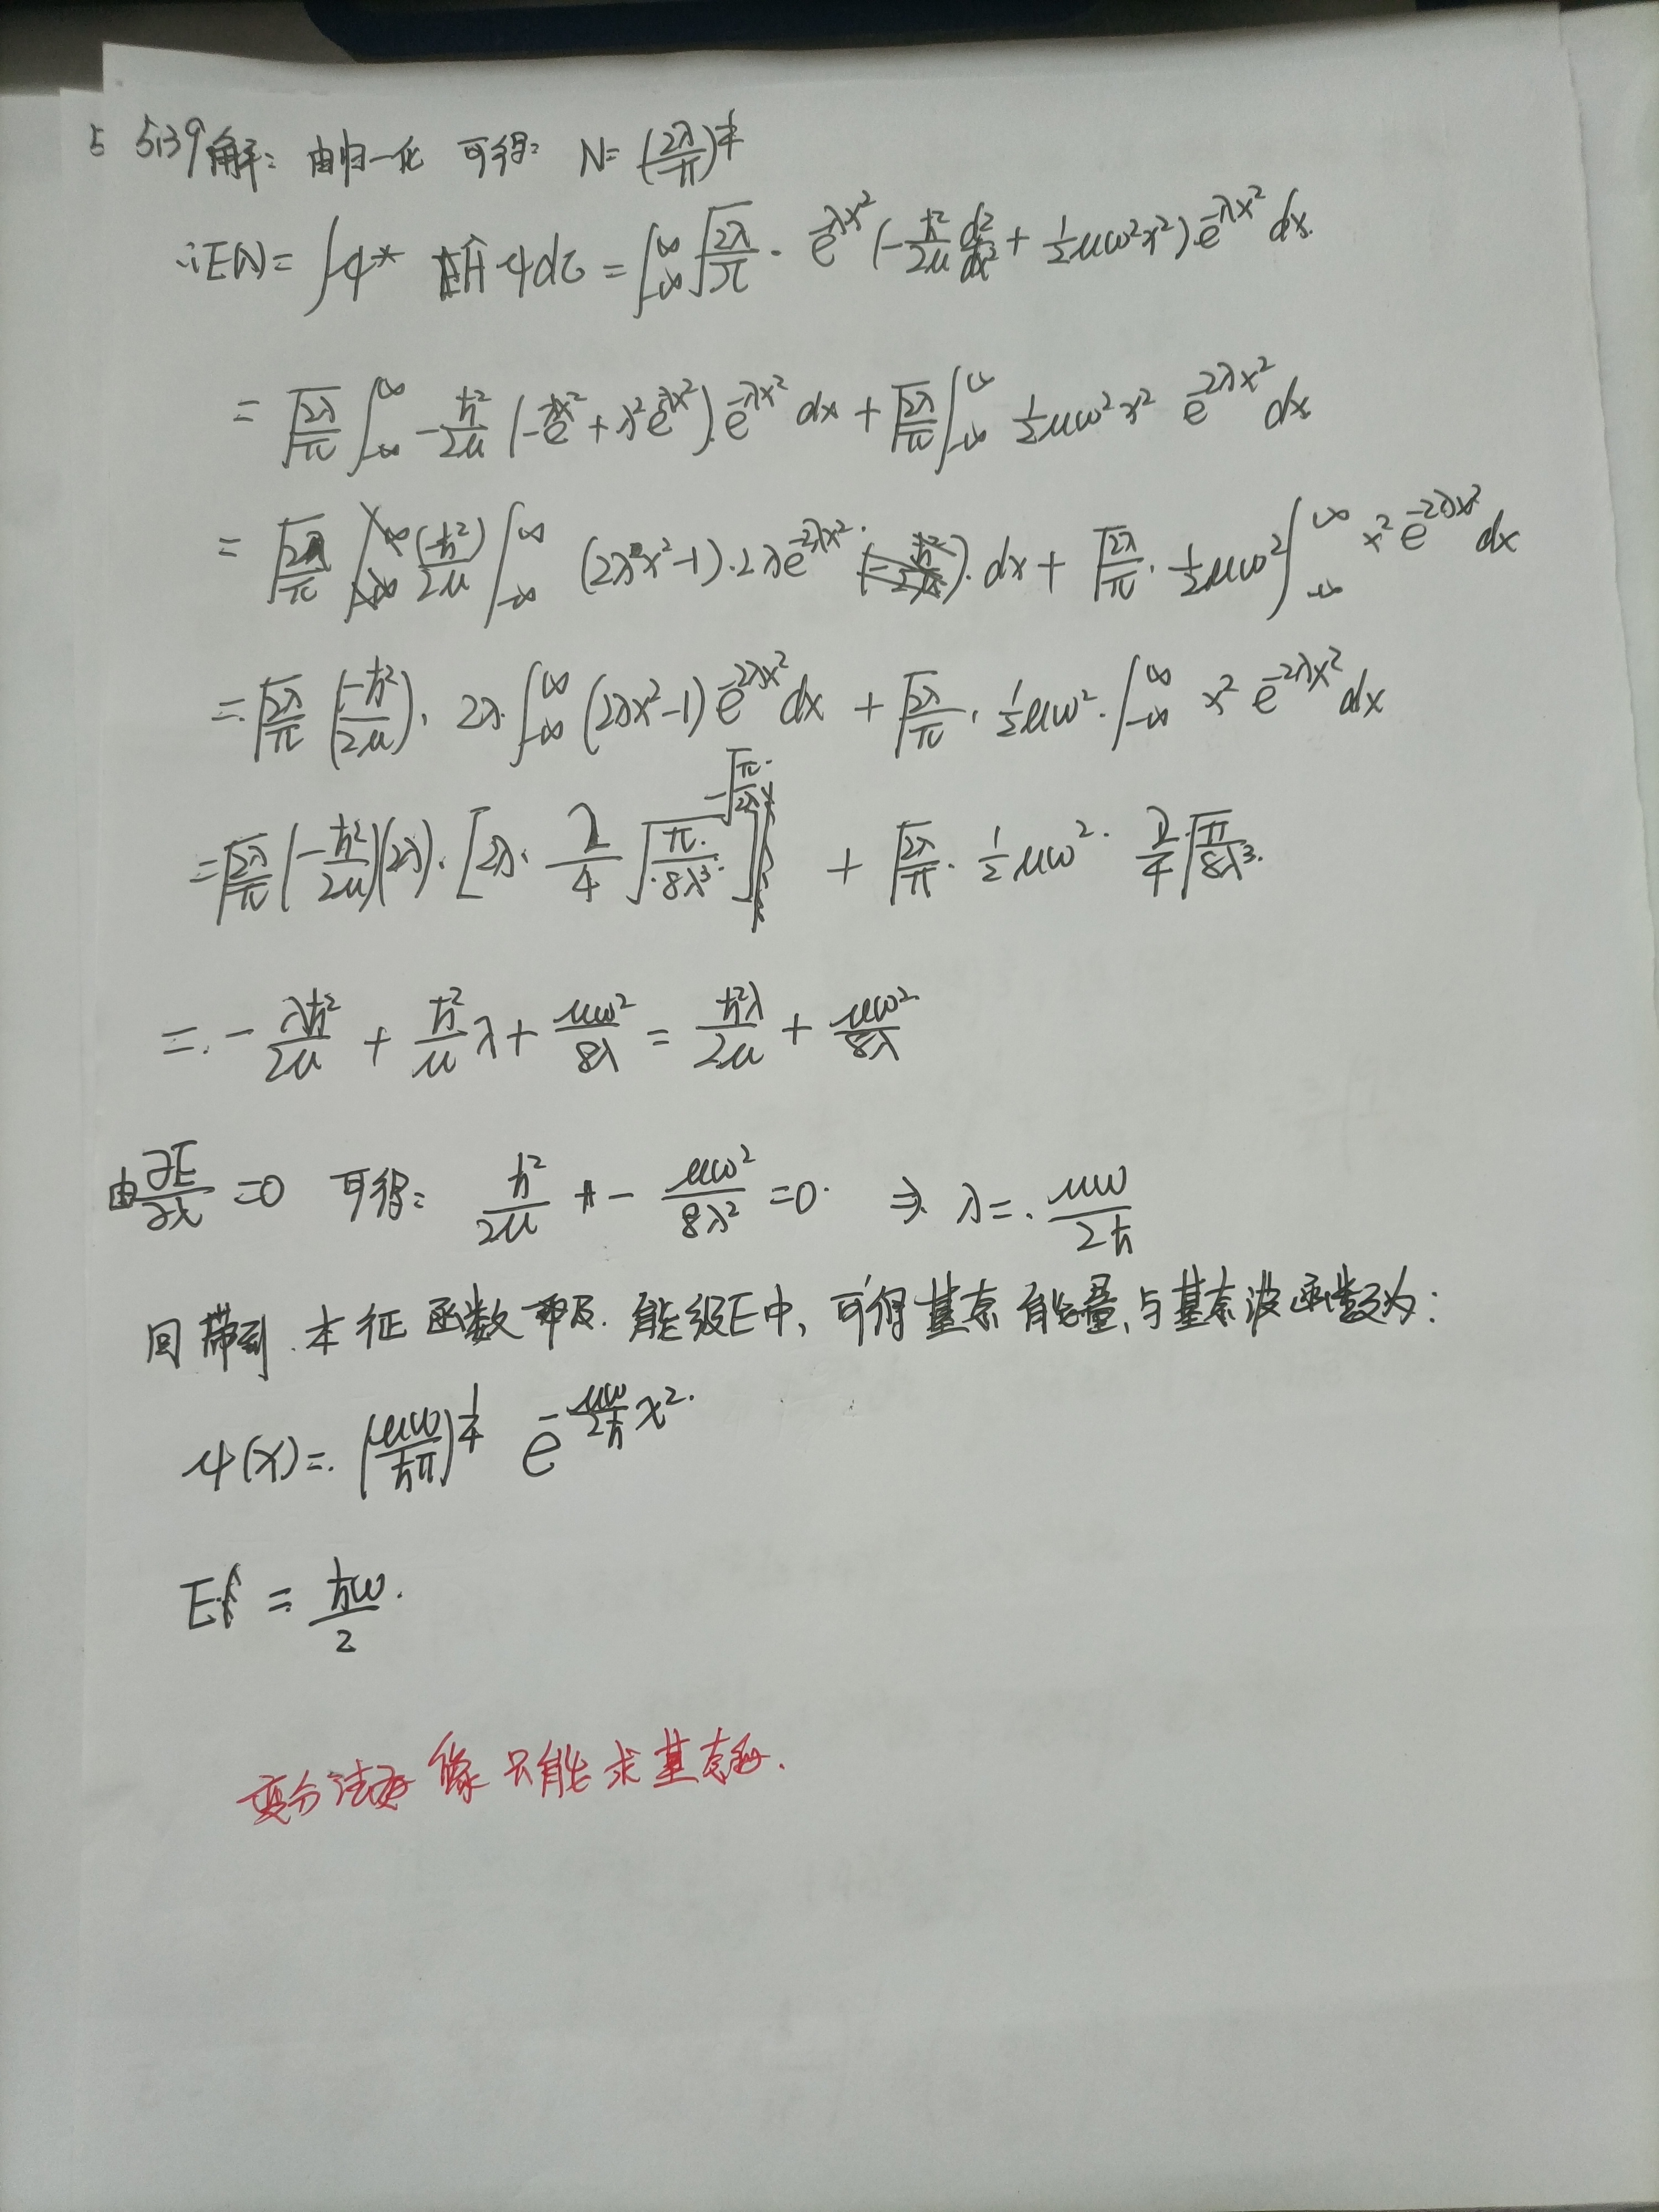 5 5.39 解: 由归一化 可得: N= (2λ/π)^{1/4}
∴E(λ)= ∫ψ* Ĥ ψdτ = ∫_{-∞}^{∞} √(2λ/π) · e^{-λx²} (-ħ²/2μ d²/dx² + ½μω²x²) e^{-λx²} dx.
= √(2λ/π) ∫_{-∞}^{∞} -ħ²/2μ (-e^{-λx²} + λ²e^{-λx²}) · e^{-λx²} dx + √(2λ/π) ∫_{-∞}^{∞} ½μω²x² e^{-2λx²} dx
= √(2λ/π) (-ħ²/2μ) ∫_{-∞}^{∞} (2λx²-1)·2λe^{-2λx²} · dx + √(2λ/π) · ½μω² ∫_{-∞}^{∞} x² e^{-2λx²} dx
= √(2λ/π) (-ħ²/2μ) · 2λ · ∫_{-∞}^{∞} (2λx²-1) e^{-2λx²} dx + √(2λ/π) · ½μω² · ∫_{-∞}^{∞} x² e^{-2λx²} dx
= √(2λ/π) (-ħ²/2μ)(2λ) · [2λ · 2/4 √(π/8λ³) - √(π/2λ)] + √(2λ/π) · ½μω² · 2/4 √(π/8λ³).
= -λħ²/2μ + ħ²/μ λ + μω²/8λ = ħ²λ/2μ + μω²/8λ
由 ∂E/∂λ =0 可得: ħ²/2μ - μω²/8λ² =0. ⇒ λ= μω/2ħ
回带到 本征函数 及 能级E中, 可得基态能量, 与基态波函数为:
ψ(x)= (μω/ħπ)^{1/4} e^{-μω/2ħ x²}.
E = ħω/2.
变分法好像只能求基态.